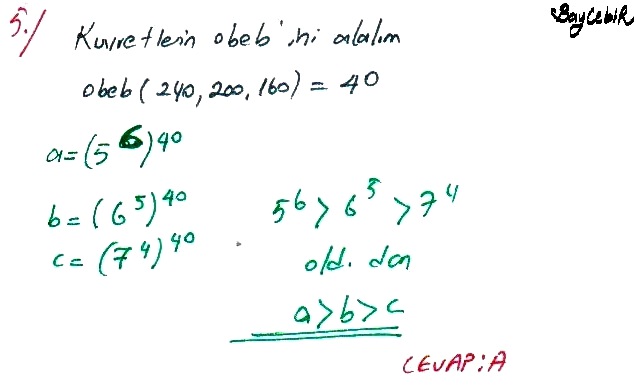 BayCebiR
5./ Kuvvetlerin obeb'ini alalım
obeb(240, 200, 160) = 40
a=(5^6)^40
b=(6^5)^40
c=(7^4)^40
5^6>6^5>7^4
old. dan
a>b>c
CEVAP:A